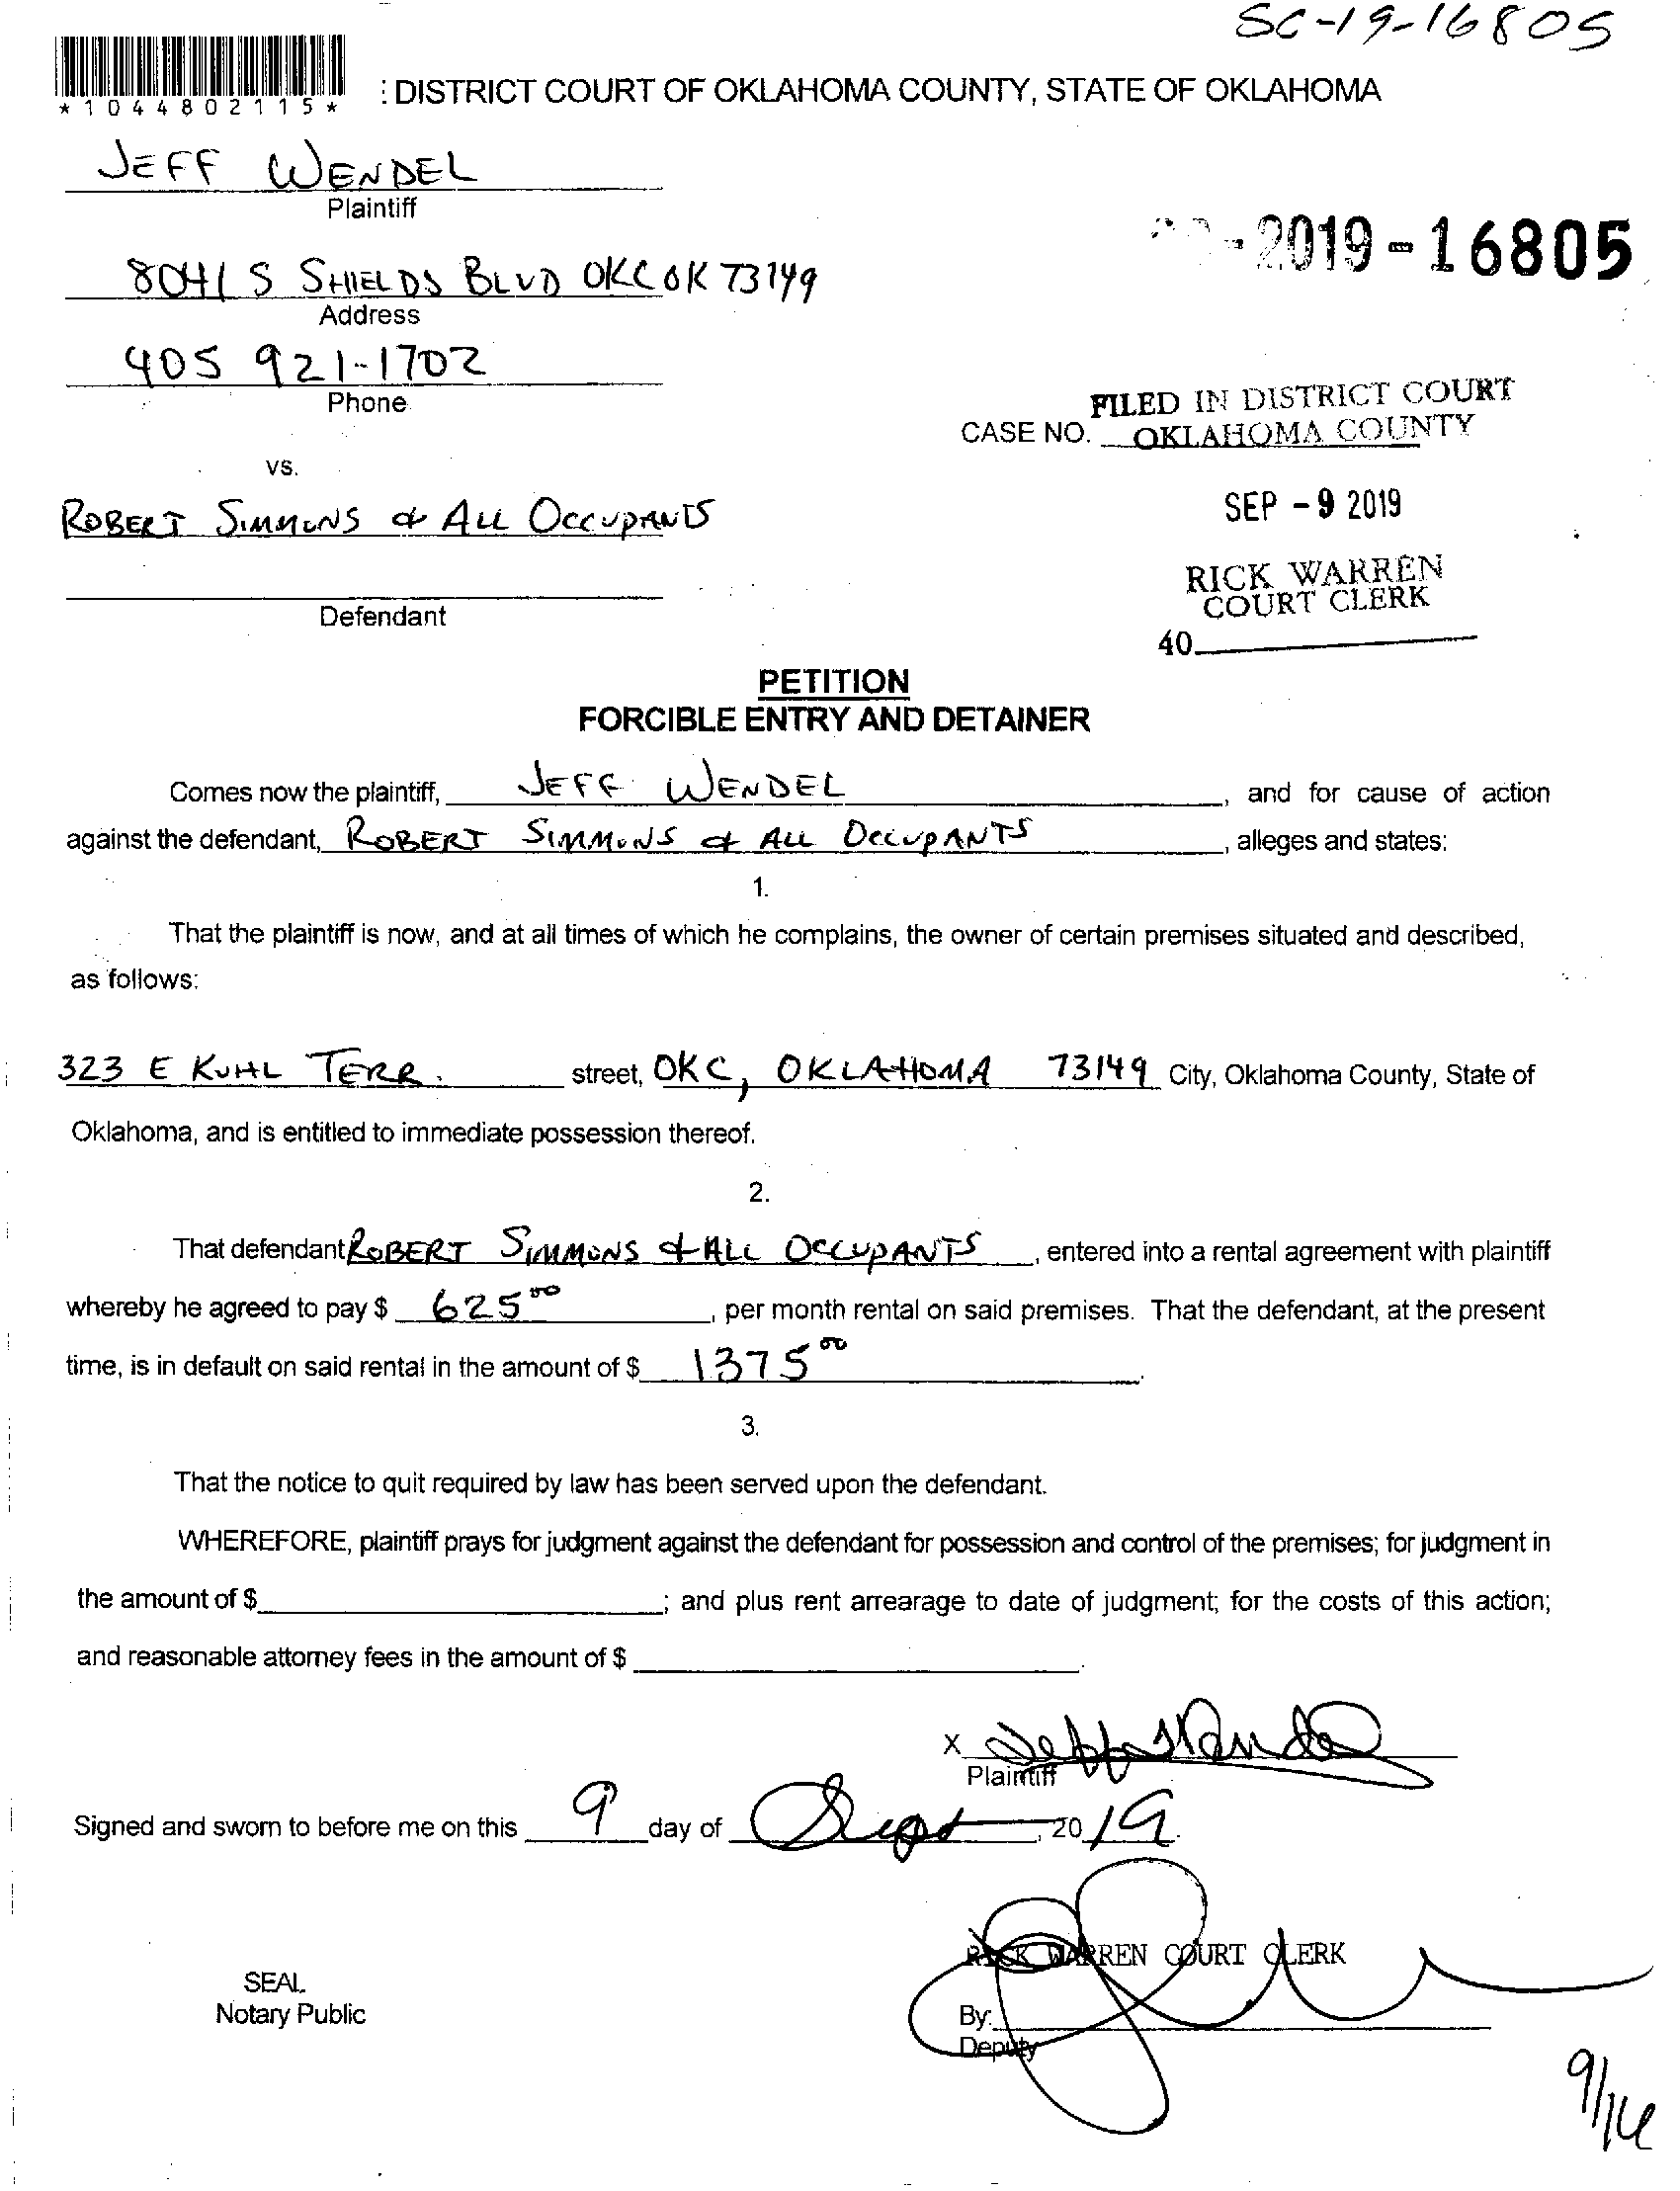 SC-19-16805
*1044802115*
: DISTRICT COURT OF OKLAHOMA COUNTY, STATE OF OKLAHOMA
JEFF WENDEL
Plaintiff
-2019-16805
8041 S SHIELDS BLVD OKC OK 73149
Address
405 921-1702
Phone
FILED IN DISTRICT COURT
CASE NO. OKLAHOMA COUNTY
vs.
SEP -9 2019
ROBERT SIMMONS & ALL OCCUPANTS
RICK WARREN
COURT CLERK
Defendant
40
PETITION
FORCIBLE ENTRY AND DETAINER
Comes now the plaintiff, JEFF WENDEL, and for cause of action
against the defendant, ROBERT SIMMONS & ALL OCCUPANTS, alleges and states:
1.
That the plaintiff is now, and at all times of which he complains, the owner of certain premises situated and described,
as follows:
323 E KUHL TERR. street, OKC, OKLAHOMA 73149 City, Oklahoma County, State of
Oklahoma, and is entitled to immediate possession thereof.
2.
That defendant ROBERT SIMMONS & ALL OCCUPANTS, entered into a rental agreement with plaintiff
whereby he agreed to pay $ 625.00, per month rental on said premises. That the defendant, at the present
time, is in default on said rental in the amount of $ 1375.00.
3.
That the notice to quit required by law has been served upon the defendant.
WHEREFORE, plaintiff prays for judgment against the defendant for possession and control of the premises; for judgment in
the amount of $ ; and plus rent arrearage to date of judgment; for the costs of this action;
and reasonable attorney fees in the amount of $ .
X Jeff Wendel
Plaintiff
Signed and sworn to before me on this 9 day of Sept, 20 19.
RICK WARREN COURT CLERK
SEAL
Notary Public
By:
Deputy